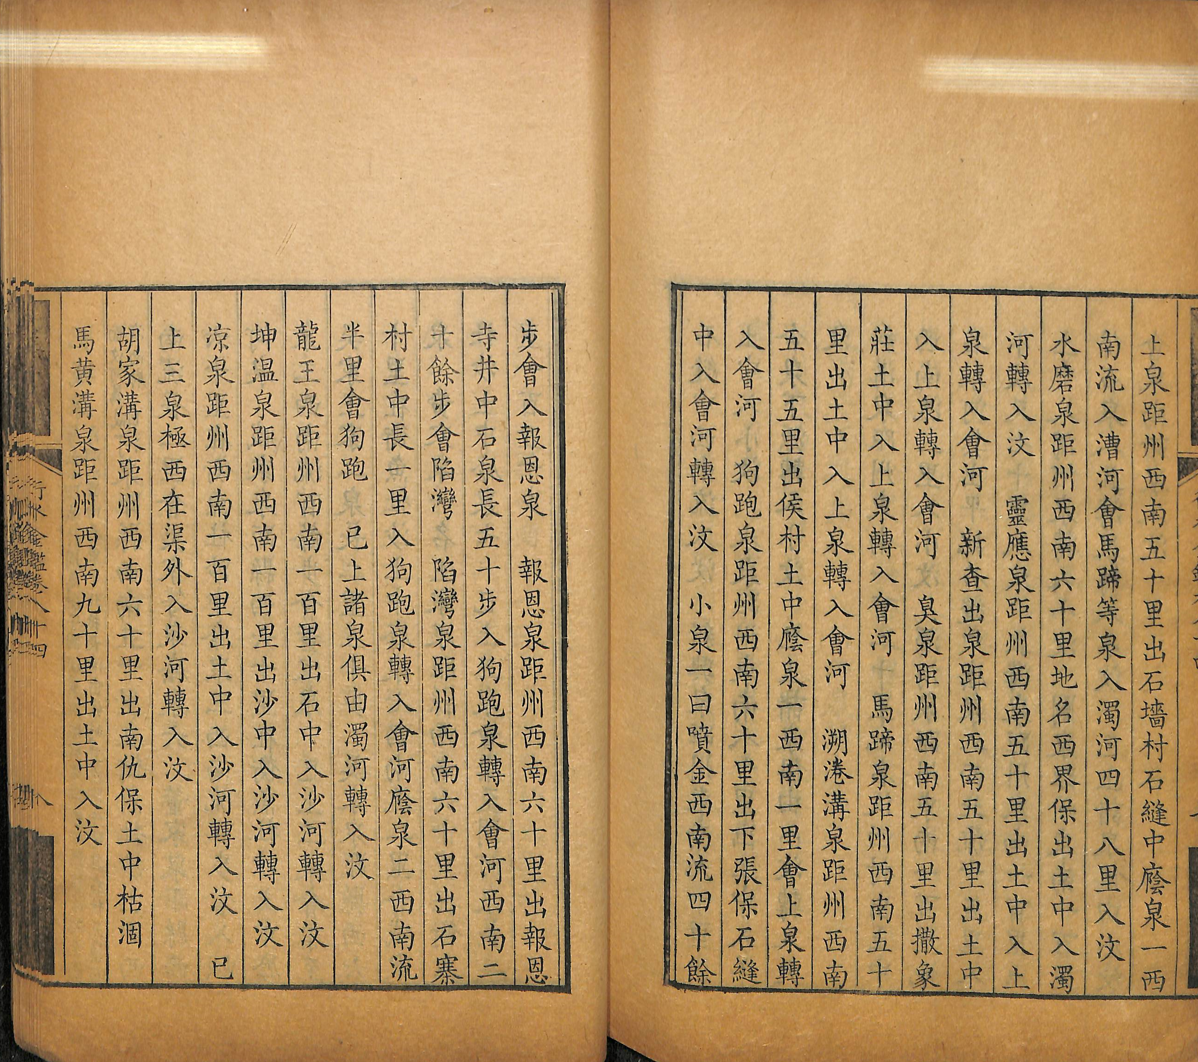 上泉距州西南五十里出石墻村石縫中廕泉一西
南流入漕河會馬蹄等泉入濁河四十八里入汶
水磨泉距州西南六十里地名西界保出土中入濁
河轉入汶　靈應泉距州西南五十里出土中入上
泉轉入會河　新查出泉距州西南五十里出土中
入上泉轉入會河　臭泉距州西南五十里出撒象
莊土中入上泉轉入會河　馬蹄泉距州西南五十
里出土中入上泉轉入會河　溯港溝泉距州西南
五十五里出侯村土中廕泉一西南一里會上泉轉
入會河　狗跑泉距州西南六十里出下張保石縫
中入會河轉入汶　小泉一曰噴金西南流四十餘
步會入報恩泉　報恩泉距州西南六十里出報恩
寺井中石泉長五十步入狗跑泉轉入會河西南二
十餘步會陷灣　陷灣泉距州西南六十里出石寨
村土中長一里入狗跑泉轉入會河廕泉二西南流
半里會狗跑　已上諸泉俱由濁河轉入汶
龍王泉距州西南一百里出石中入沙河轉入汶
坤温泉距州西南一百里出沙中入沙河轉入汶
凉泉距州西南一百里出土中入沙河轉入汶　已
上三泉極西在渠外入沙河轉入汶
胡家溝泉距州西南六十里出南仇保土中枯涸
馬黄溝泉距州西南九十里出土中入汶
行水金鑑卷八十四